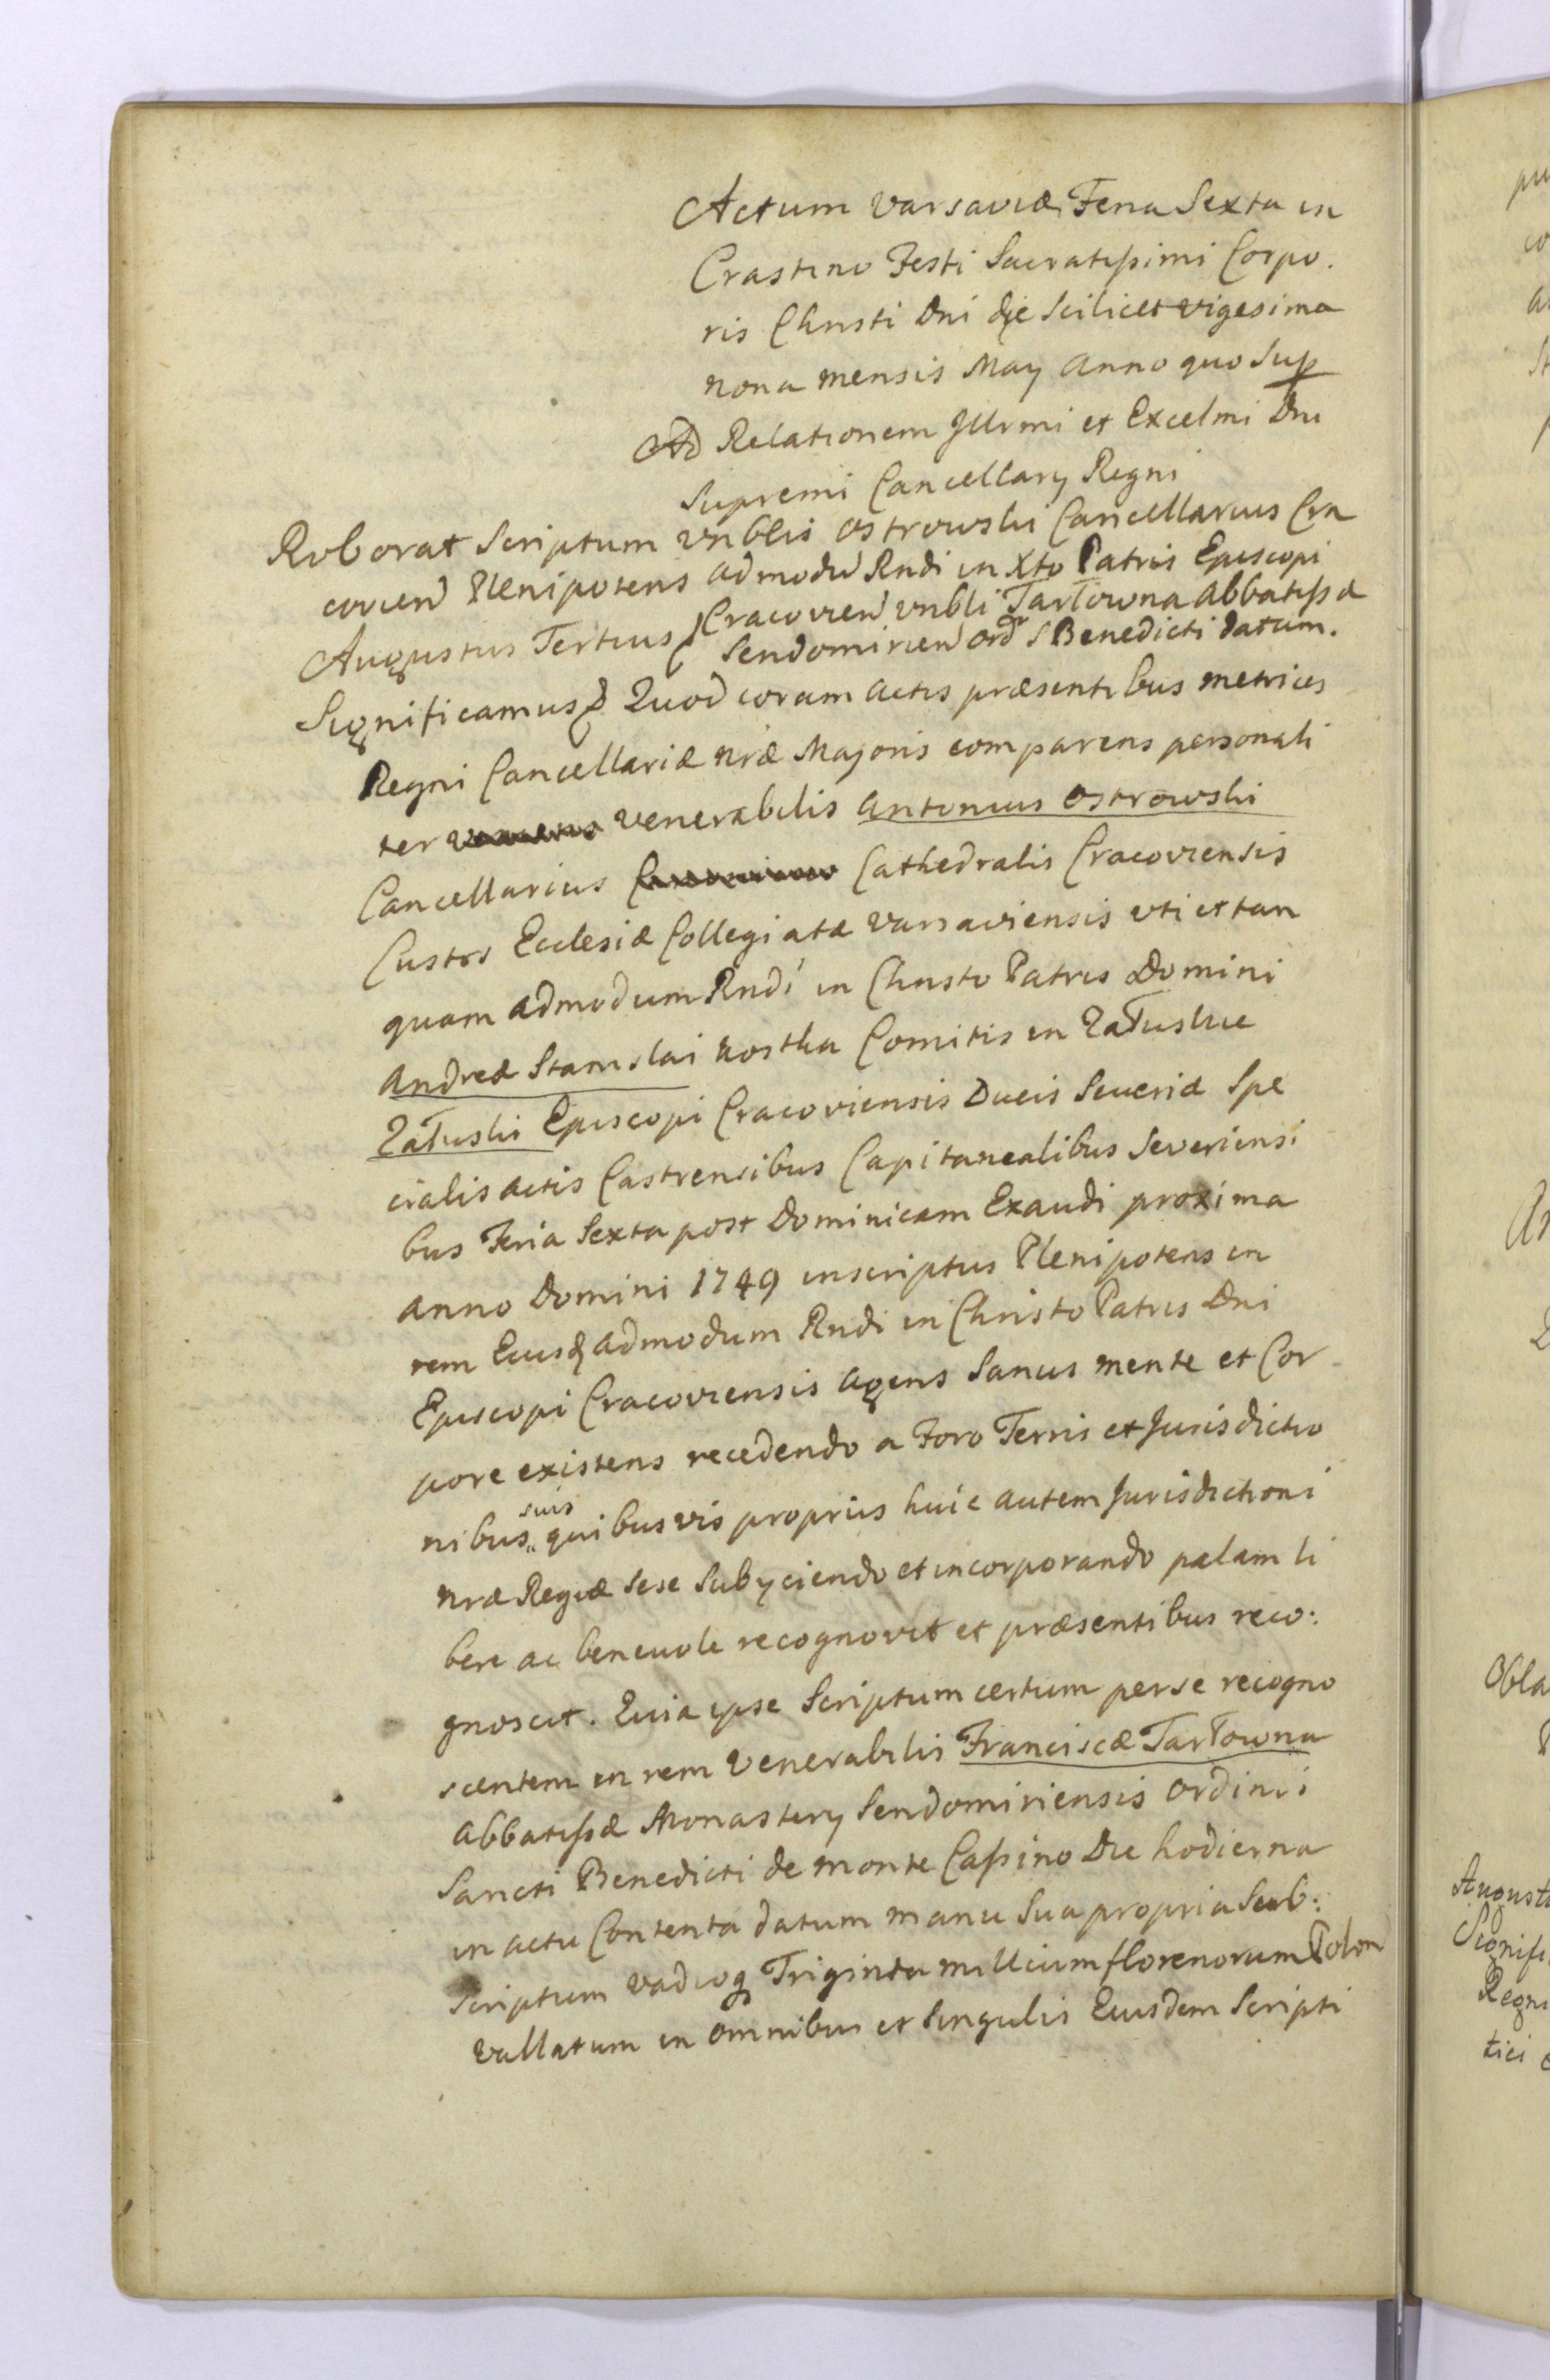 Actum Varsaviæ Feria Sexta in
Crastino Festi Sacratissimi Corpo.
ris Christi Dni die Scilicet vigesima
nona mensis May Anno quo Sup
Ad Relationem Illrmi et Excelmi Dni
Supremi Cancellary Regni
Roborat Scriptum Vnblis Ostrowski Cancellarius Cra
covien Plenipotens admodu Rndi in Xto Patris Episcopi
Cracovien vnbli Tarłowna Abbatissæ
Augustus Tertius
Sendomirien Ord S Benedicti datum.
Significamus Quod coram actis præsentibus metrices
Regni Cancellariæ nræ Majoris comparens personali
ter venerabilis Antonius Ostrowski
Cancellarius Cathedralis Cracoviensis
Custos Ecclesiæ Collegiatæ Varsaviensis uti et tan
quam admodum Rndi in Christo Patris Domini
Andreæ Stanislai Kostka Comitis in Załuskie
Załuski Episcopi Cracoviensis Ducis Severiæ Spe
cialis actis Castrensibus Capitanealibus Severiensi
bus Feria Sexta post Dominicam Exaudi proxima
anno Domini 1749 inscriptus Plenipotens in
rem Eiusd admodum Rndi in Christo Patris Dni
Episcopi Cracoviensis agens Sanus mente et Cor
pore existens recedendo a Foro Terris et Jurisdictio
suis
nibus quibusvis propriis huic autem Jurisdictioni
nræ Regiæ sese Subyciendo et incorporando palam li
bere ac benevole recognovit et præsentibus reco:
gnoscit. Quia ipse Scriptum certum per se recogno
scentem in rem Venerabilis Franciscæ Tarłowna
Abbatissæ Monastery Sendomiriensis Ordinis
Sancti Benedicti de monte Cassino Die hodierna
in actu Contenta datum manu Sua propria Sub:
scriptum vadioq Triginta millium florenorum Polon
vallatum in omnibus et Singulis Eiusdem Scripti
Obla
August
Signifi
Regni
tici